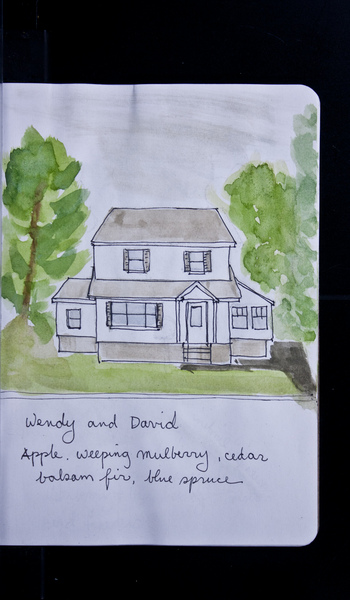 Wendy and David
Apple, weeping mulberry, cedar
balsam fir, blue spruce